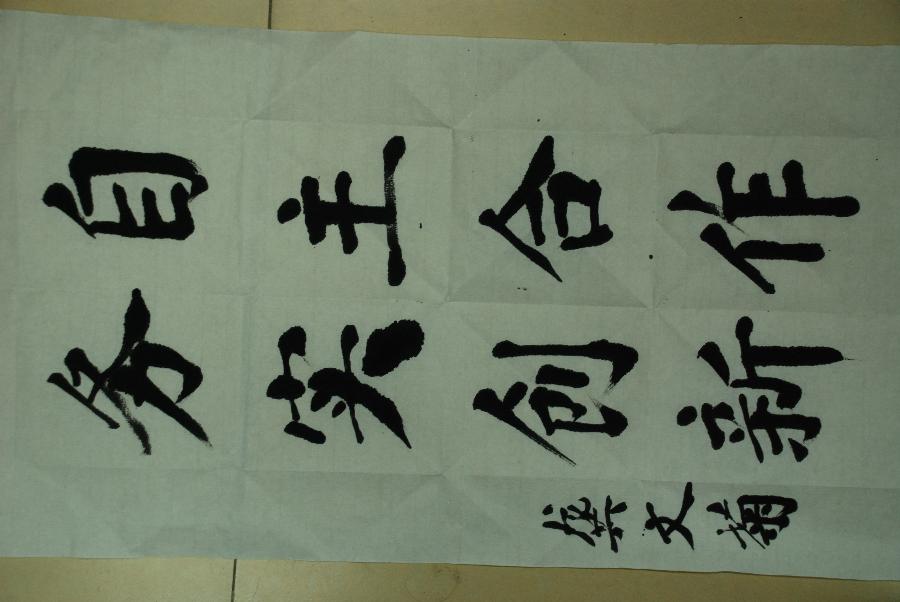 自主合作
务实创新
龚文